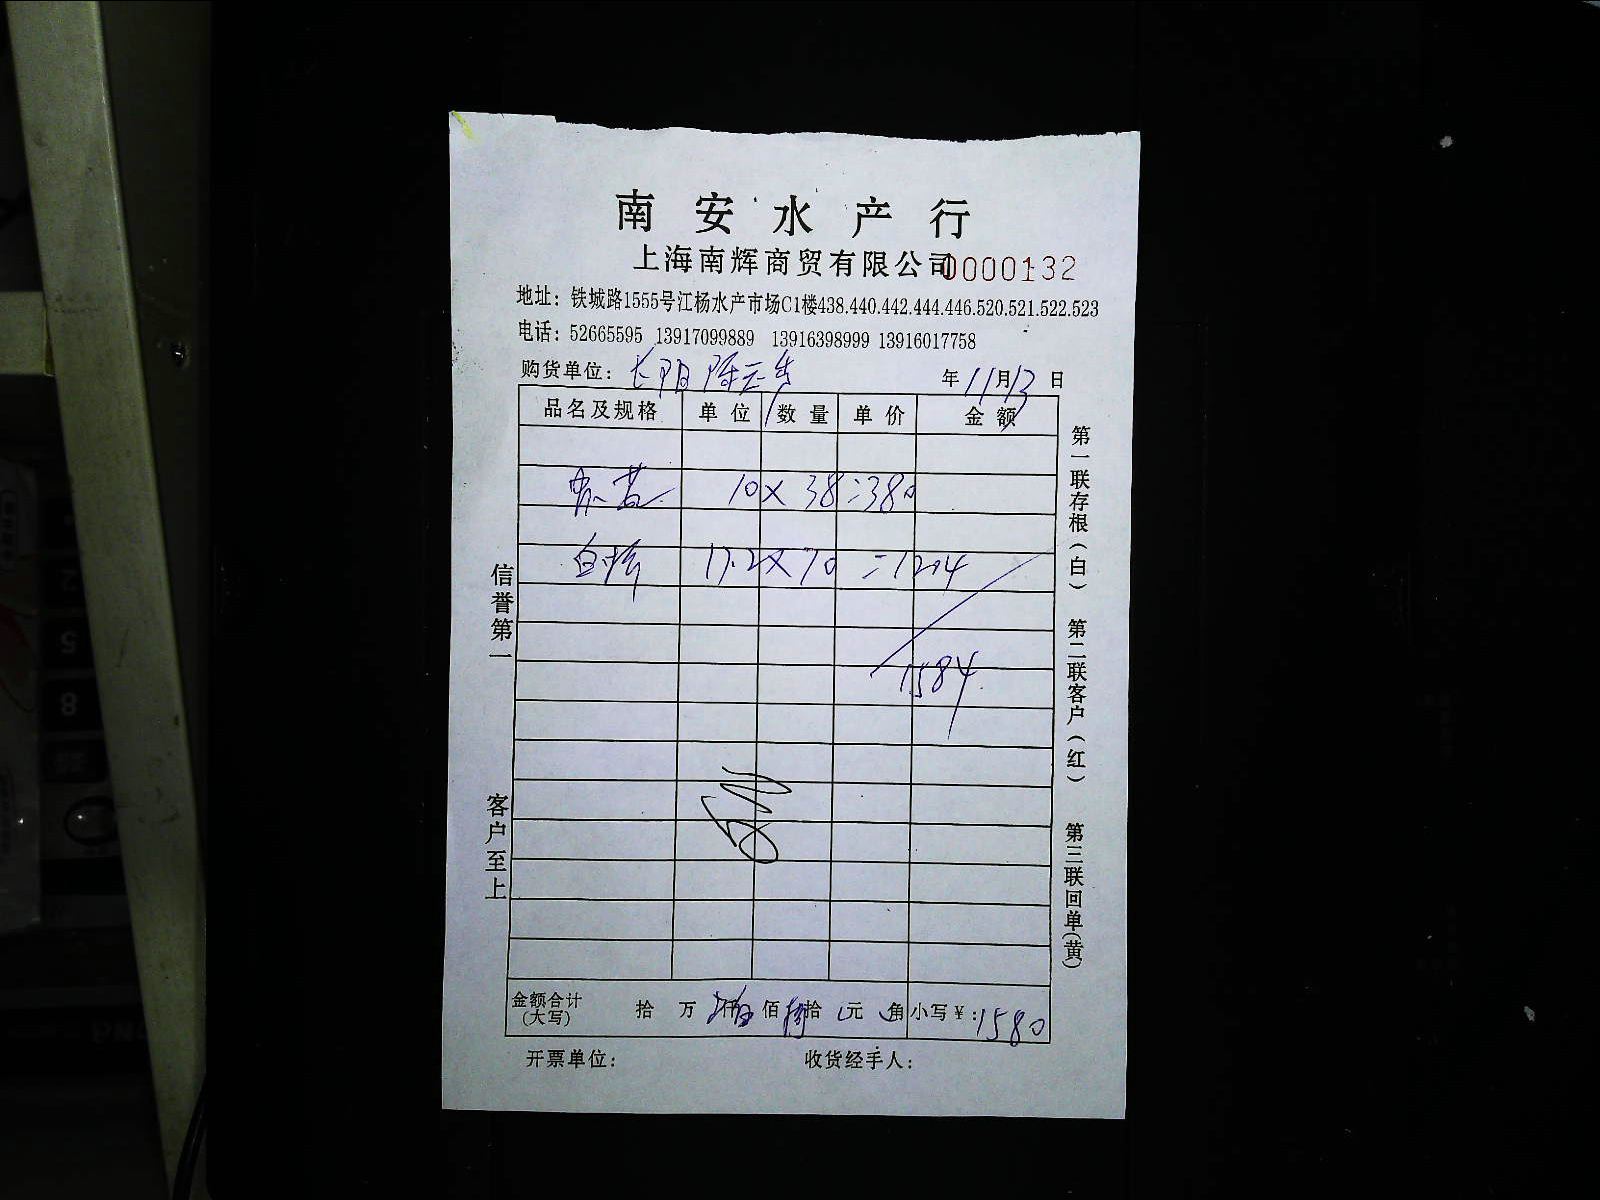 南安水产行
上海南辉商贸有限公司0000132
地址：铁城路1555号江杨水产市场C1楼438.440.442.444.446.520.521.522.523
电话：52665595 13917099889 13916398999 13916017758
购货单位：长阳 年11月13日
品名及规格 单位 数量 单价 金额
10×38=380
白 17.2×70=1204
1584
金额合计(大写) 拾 万 仟 佰 拾 元 角 小写¥：1580
开票单位： 收货经手人：
信誉第一
客户至上
第一联存根(白) 第二联客户(红) 第三联回单(黄)